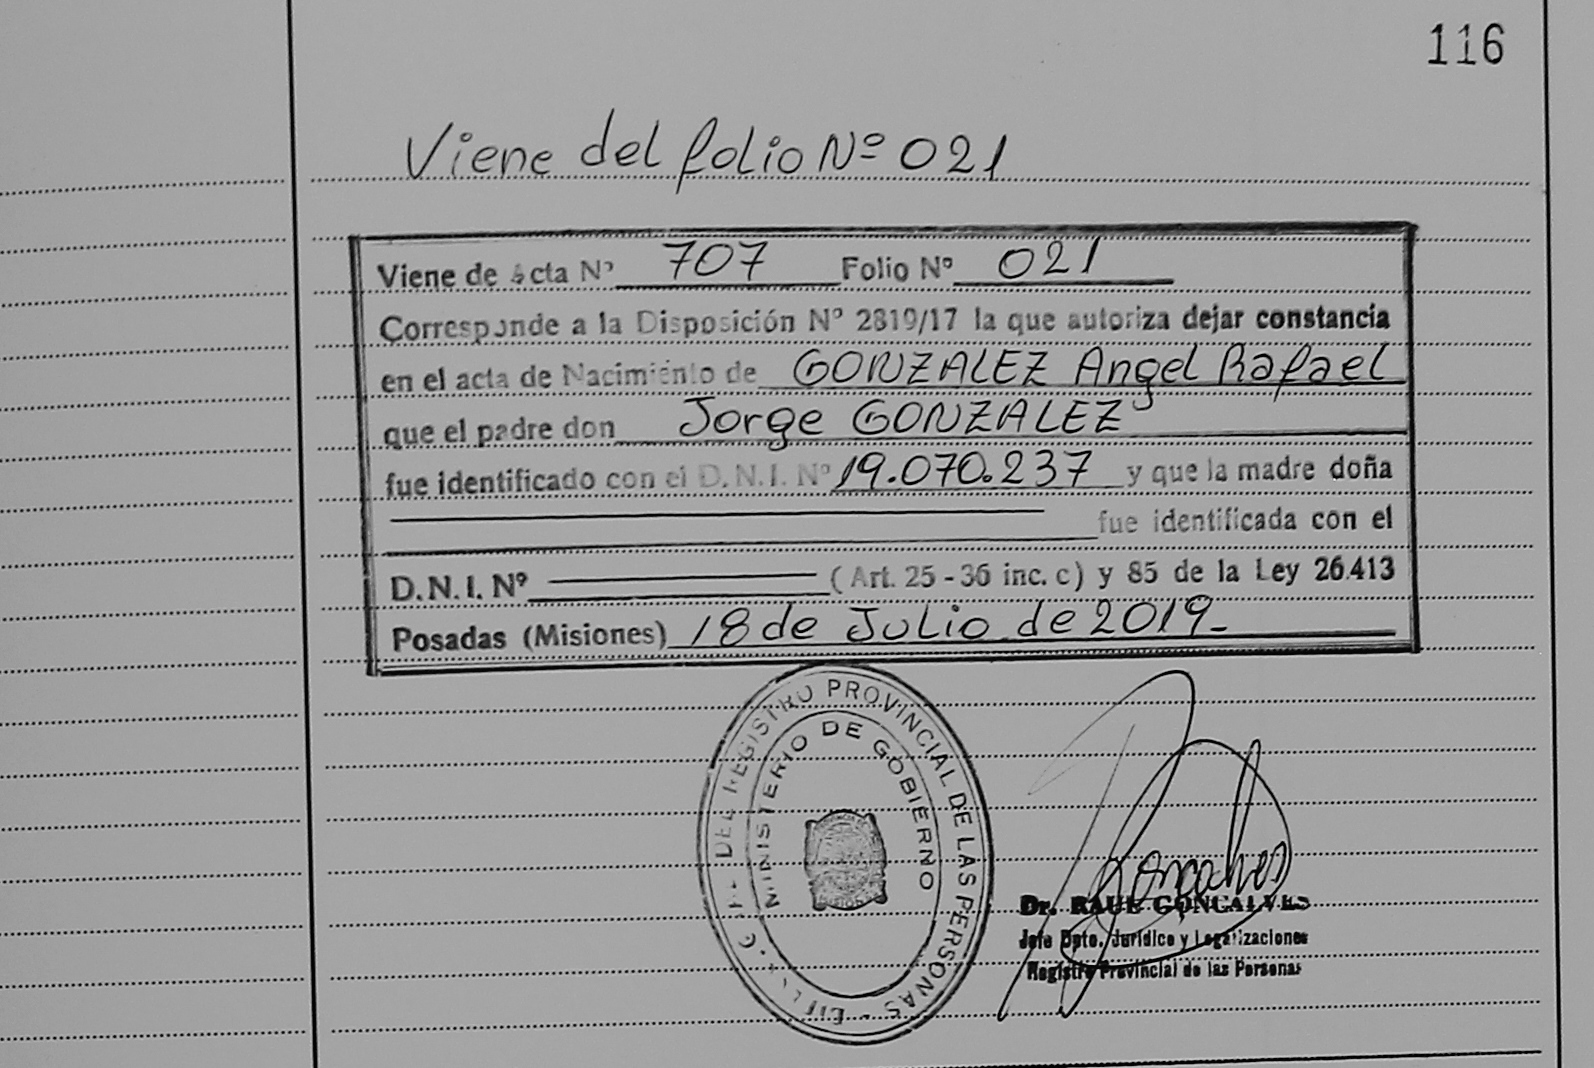 116
Viene del folio Nº 021
Viene de Acta Nº 707 Folio Nº 021
Corresponde a la Disposición Nº 2819/17 la que autoriza dejar constancia
en el acta de Nacimiento de GONZALEZ Angel Rafael
que el padre don Jorge GONZALEZ
fue identificado con el D.N.I. Nº 19.070.237 y que la madre doña
fue identificada con el
D.N.I. Nº (Art. 25 - 36 inc. c) y 85 de la Ley 26.413
Posadas (Misiones) 18 de Julio de 2019.
DEL REGISTRO PROVINCIAL DE LAS PERSONAS
MINISTERIO DE GOBIERNO
Gonçalves
Dr. RAUL GONCALVES
Jefe Dpto. Jurídico y Legalizaciones
Registro Provincial de las Personas